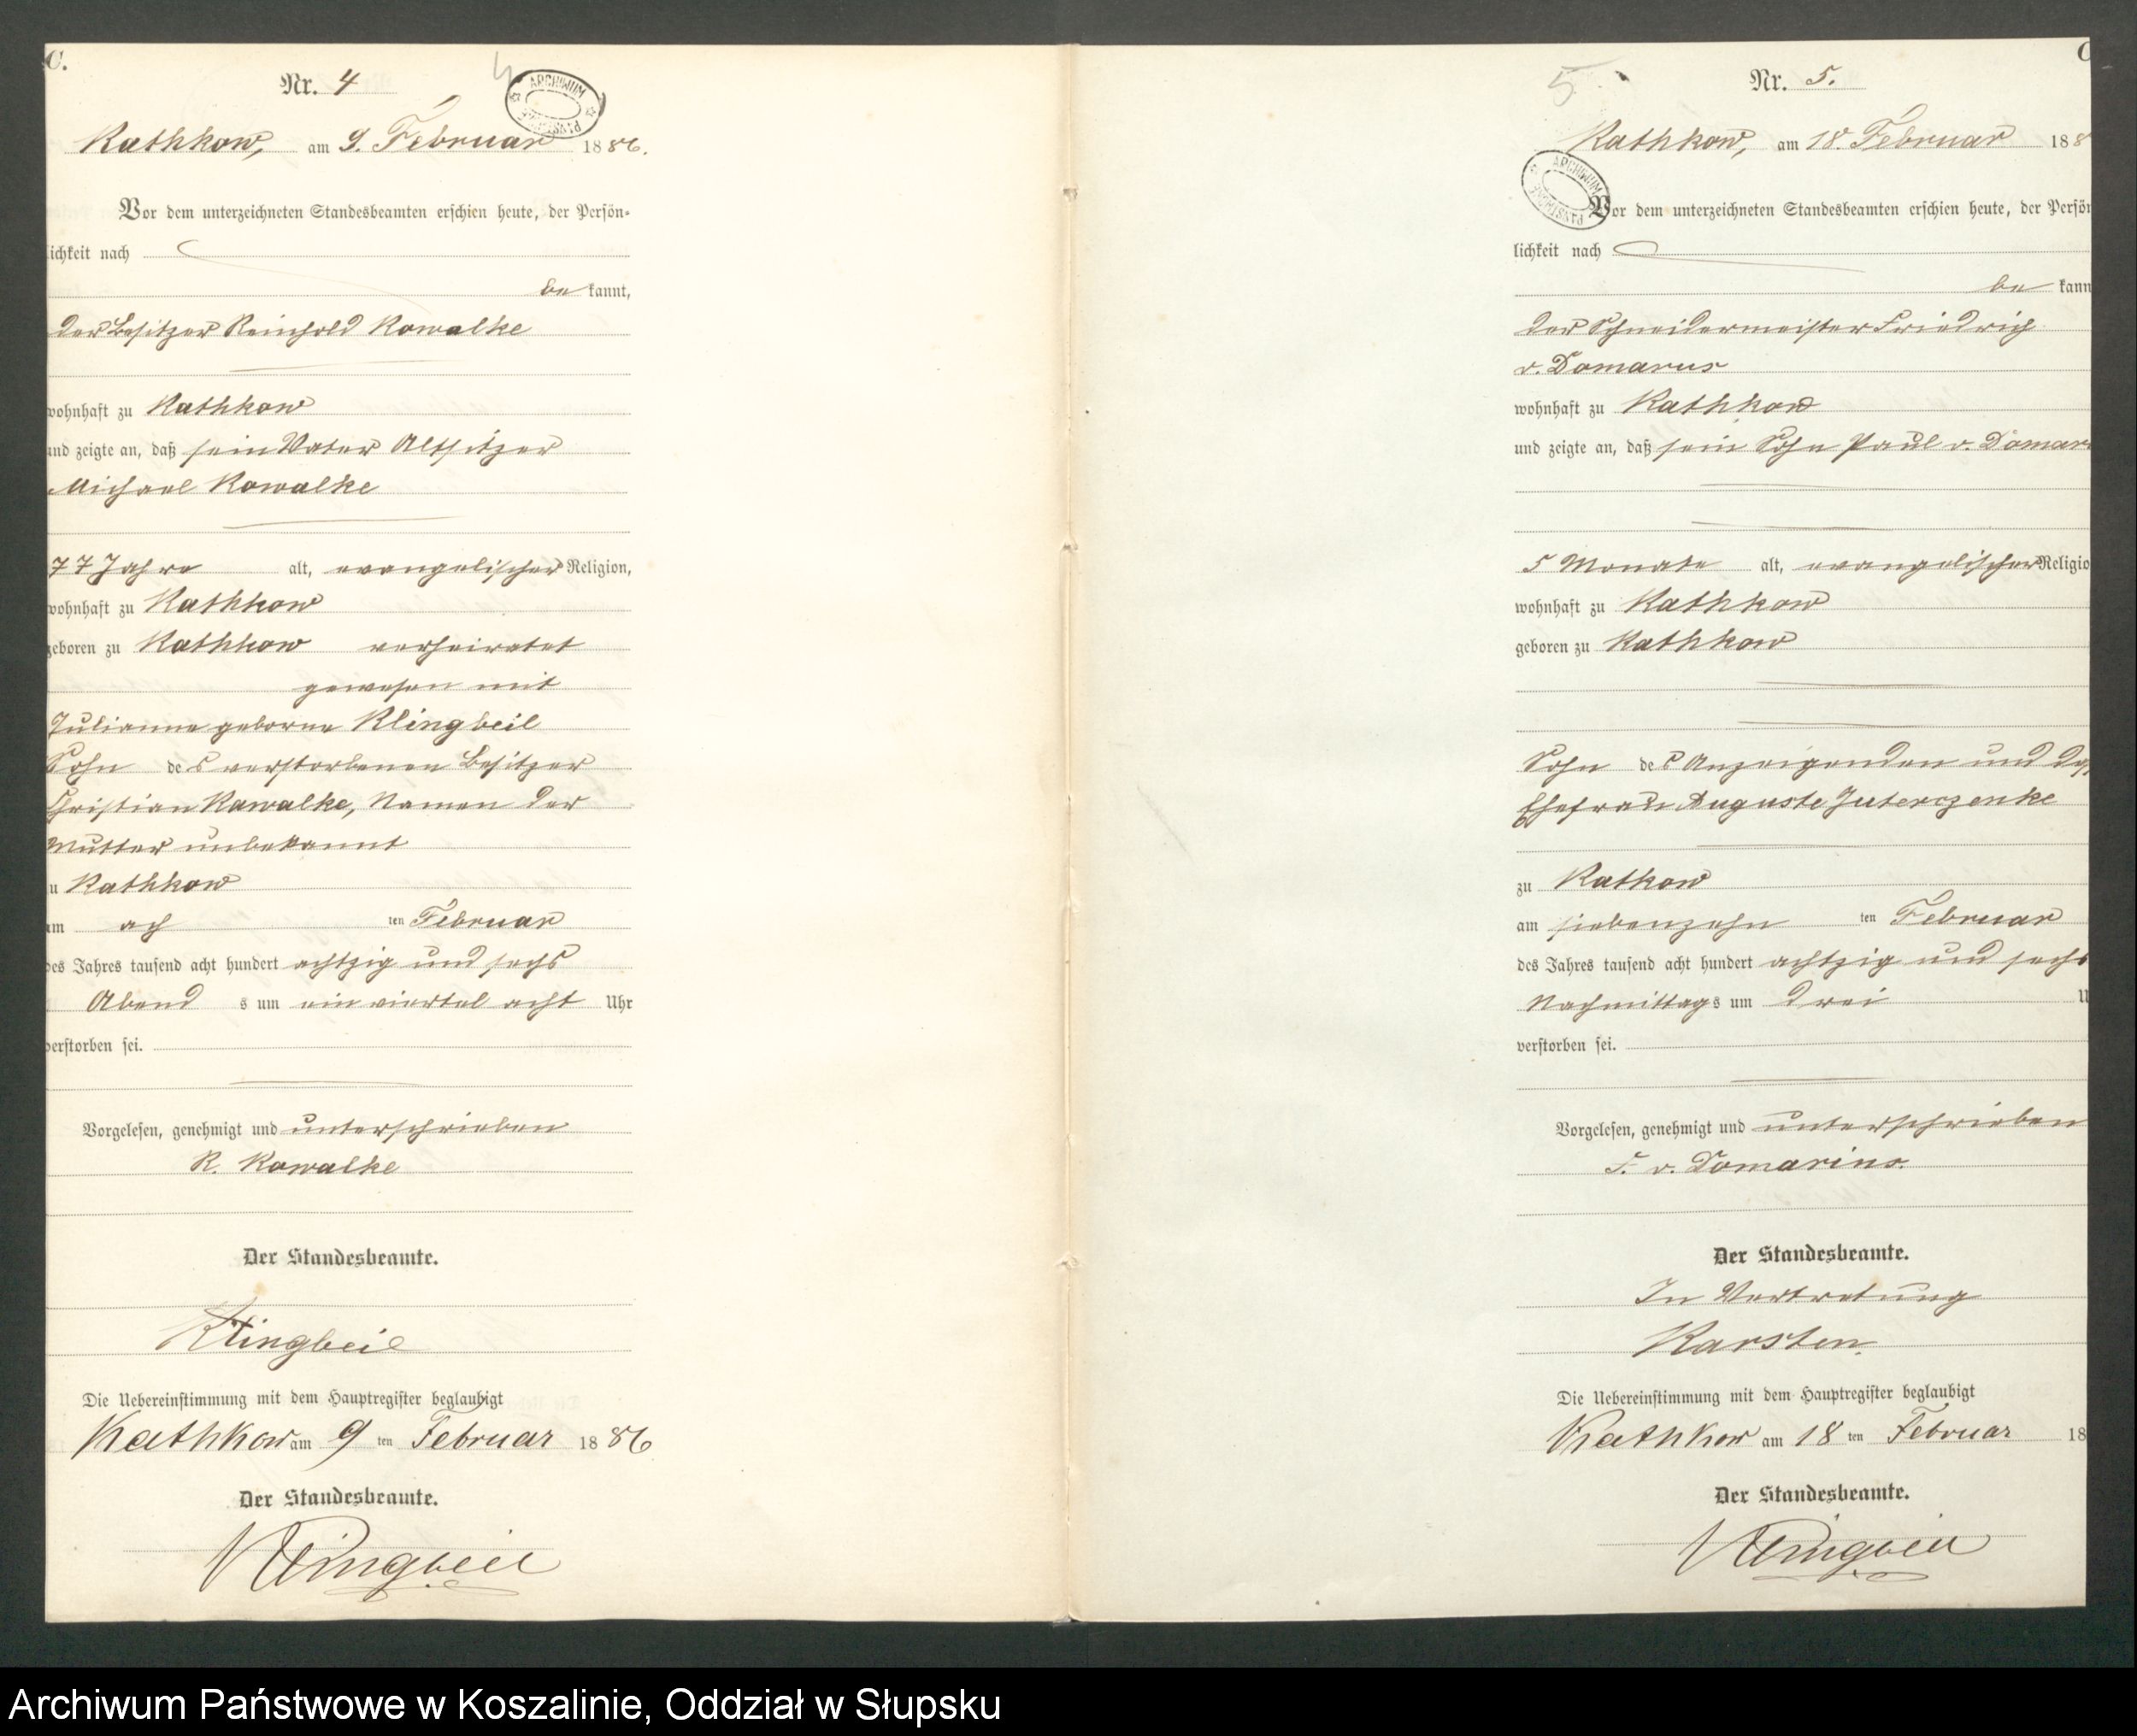 C.
Nr. 4
4
ARCHIWUM PAŃSTWOWE
Kathkow, am 9. Februar 1886.
Vor dem unterzeichneten Standesbeamten erschien heute, der Persön-
lichkeit nach
be kannt,
der Besitzer Reinhold Kowalke
wohnhaft zu Kathkow
und zeigte an, daß sein Vater Altsitzer
Michael Kowalke
77 Jahre alt, evangelischer Religion,
wohnhaft zu Kathkow
geboren zu Kathkow verheiratet
gewesen mit
Julianne geborne Klingbeil
Sohn des verstorbenen Besitzer
Christian Kawalke, Namen der
Mutter unbekannt
zu Kathkow
am ach ten Februar
des Jahres tausend acht hundert achtzig und sechs
Abend s um ein viertel acht Uhr
verstorben sei.
Vorgelesen, genehmigt und unterschrieben
R. Kowalke
Der Standesbeamte.
Klingbeil
Die Uebereinstimmung mit dem Hauptregister beglaubigt
Kathkow am 9 ten Februar 1886
Der Standesbeamte.
Klingbeil
C
5
Nr. 5.
Kathkow, am 18. Februar 188
ARCHIWUM PAŃSTWOWE
Vor dem unterzeichneten Standesbeamten erschien heute, der Persön
lichkeit nach
be kann
der Schneidermeister Friedrich
v. Domarus
wohnhaft zu Kathkow
und zeigte an, daß sein Sohn Paul v. Domar
5 Monate alt, evangelischer Religio
wohnhaft zu Kathkow
geboren zu Kathkow
Sohn des Anzeigenden und
Ehefrau Auguste Juterczenke
zu Katkow
am siebenzehn ten Februar
des Jahres tausend acht hundert achtzig und sechs
Nachmittags um drei U
verstorben sei.
Vorgelesen, genehmigt und unterschrieben
F. v. Domarius.
Der Standesbeamte.
In Vertretung
Karsten.
Die Uebereinstimmung mit dem Hauptregister beglaubigt
Kathkow am 18 ten Februar 18
Der Standesbeamte.
Klingbeil
Archiwum Państwowe w Koszalinie, Oddział w Słupsku